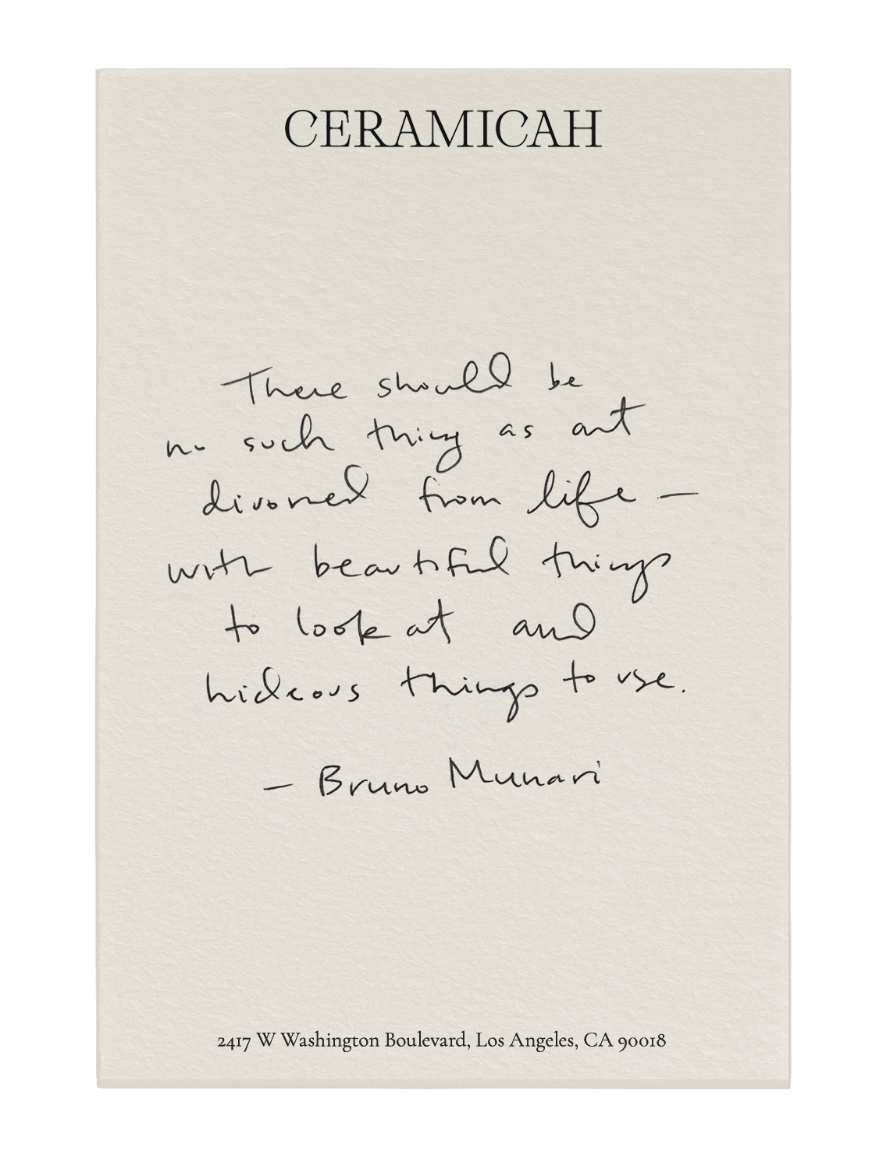 CERAMICAH
There should be
no such thing as art
divorced from life —
with beautiful things
to look at and
hideous things to use.
— Bruno Munari
2417 W Washington Boulevard, Los Angeles, CA 90018